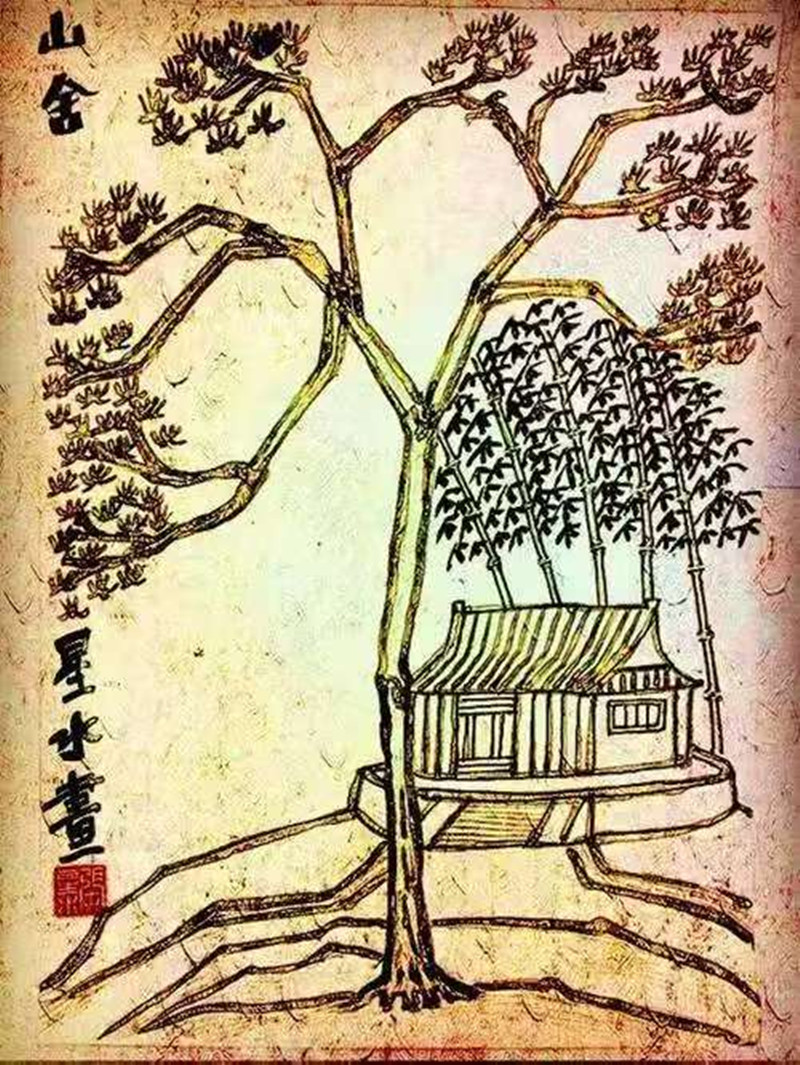 山舍
星水畫